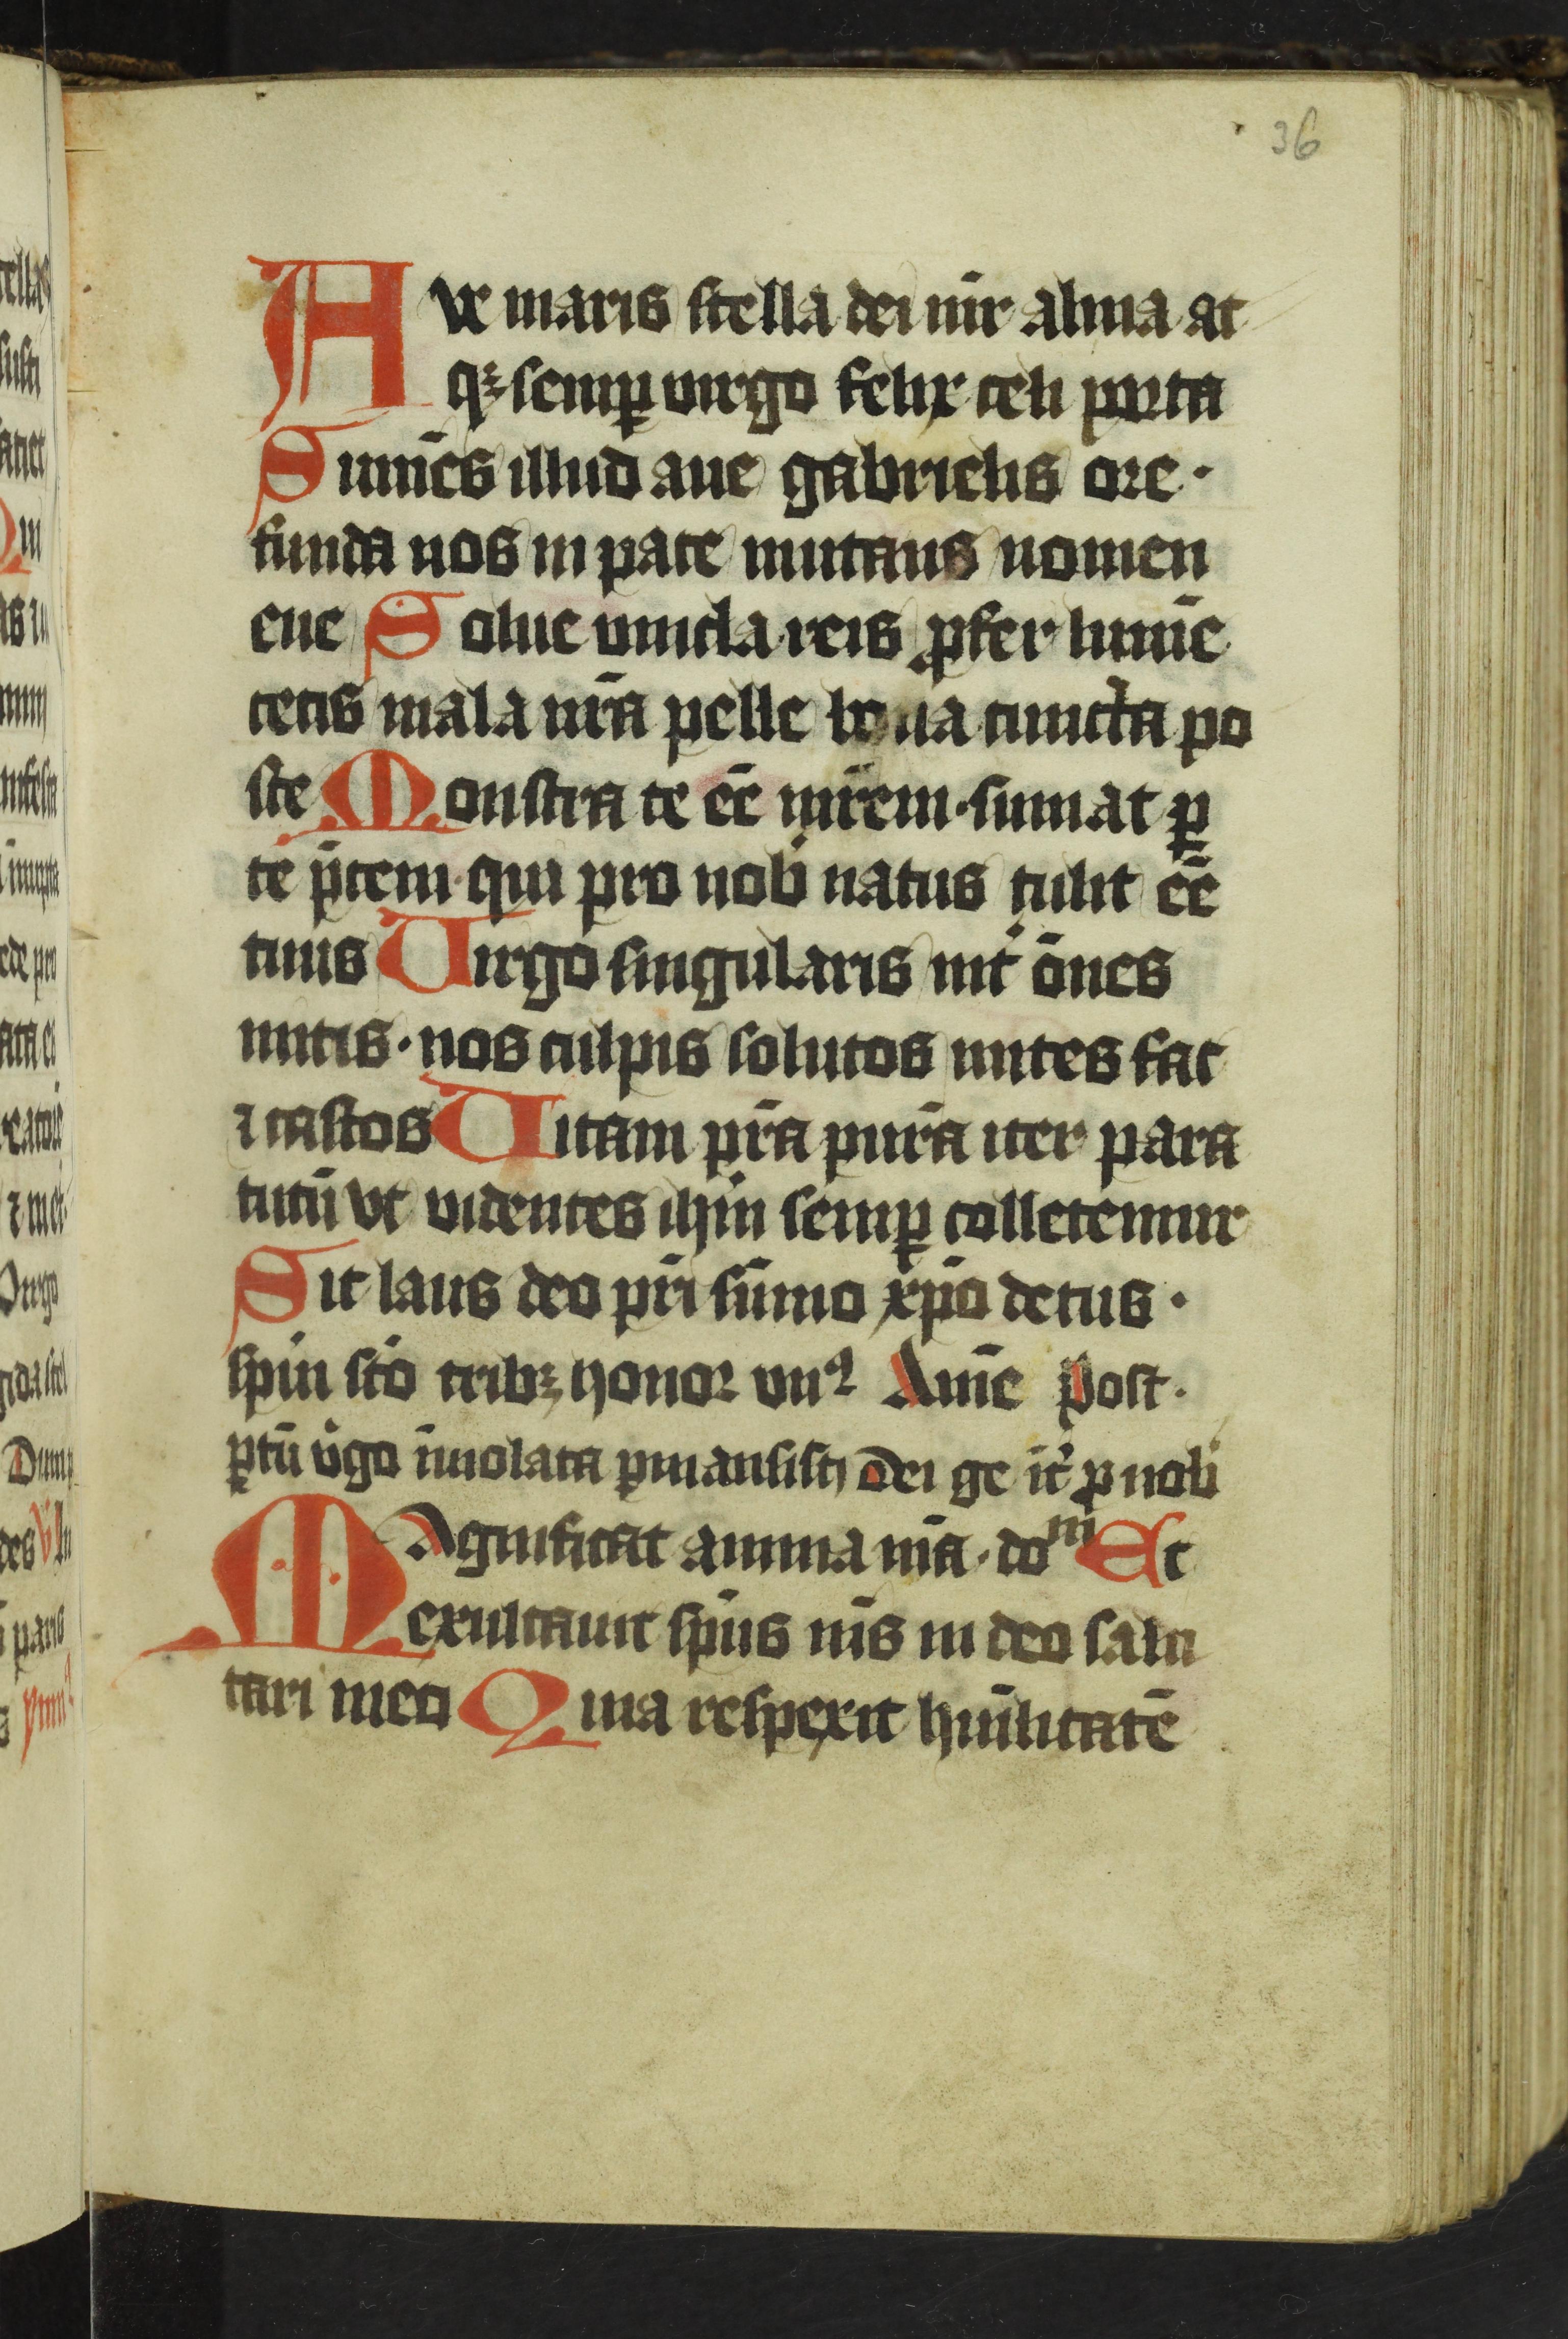 36
Aue maris stella dei mr̄ alma at
qꝫ semꝑ virgo felix celi porta
Sumēs illud aue gabrielis ore·
funda nos in pace mutans nomen
eue Solue vincla reis ꝓfer lumē
cecis mala nr̄a pelle bona cuncta po
sce Monstra te eē mr̄em·sumat ꝑ
te p̄cem qui pro nob̄ natus tulit eē
tuus Uirgo singularis int̄ om̄es
mitis·nos culpis solutos mites fac
⁊ castos Uitam pr̄a purā iter para
tutū vt videntes ihm̄ semꝑ colletemur
Sit laus deo pr̄i sūmo xp̄o decus·
spūi scō tribꝫ honor vnꝰ Amē Post·
ꝑtū v̄go īuiolata ꝑmansisti Dei ge īt̄ ꝓ nob̄
MAgnificat anima mā·dom̄ Et
exultauit spūs mēs in deo salu
tari meo Quia respexit humilitatē